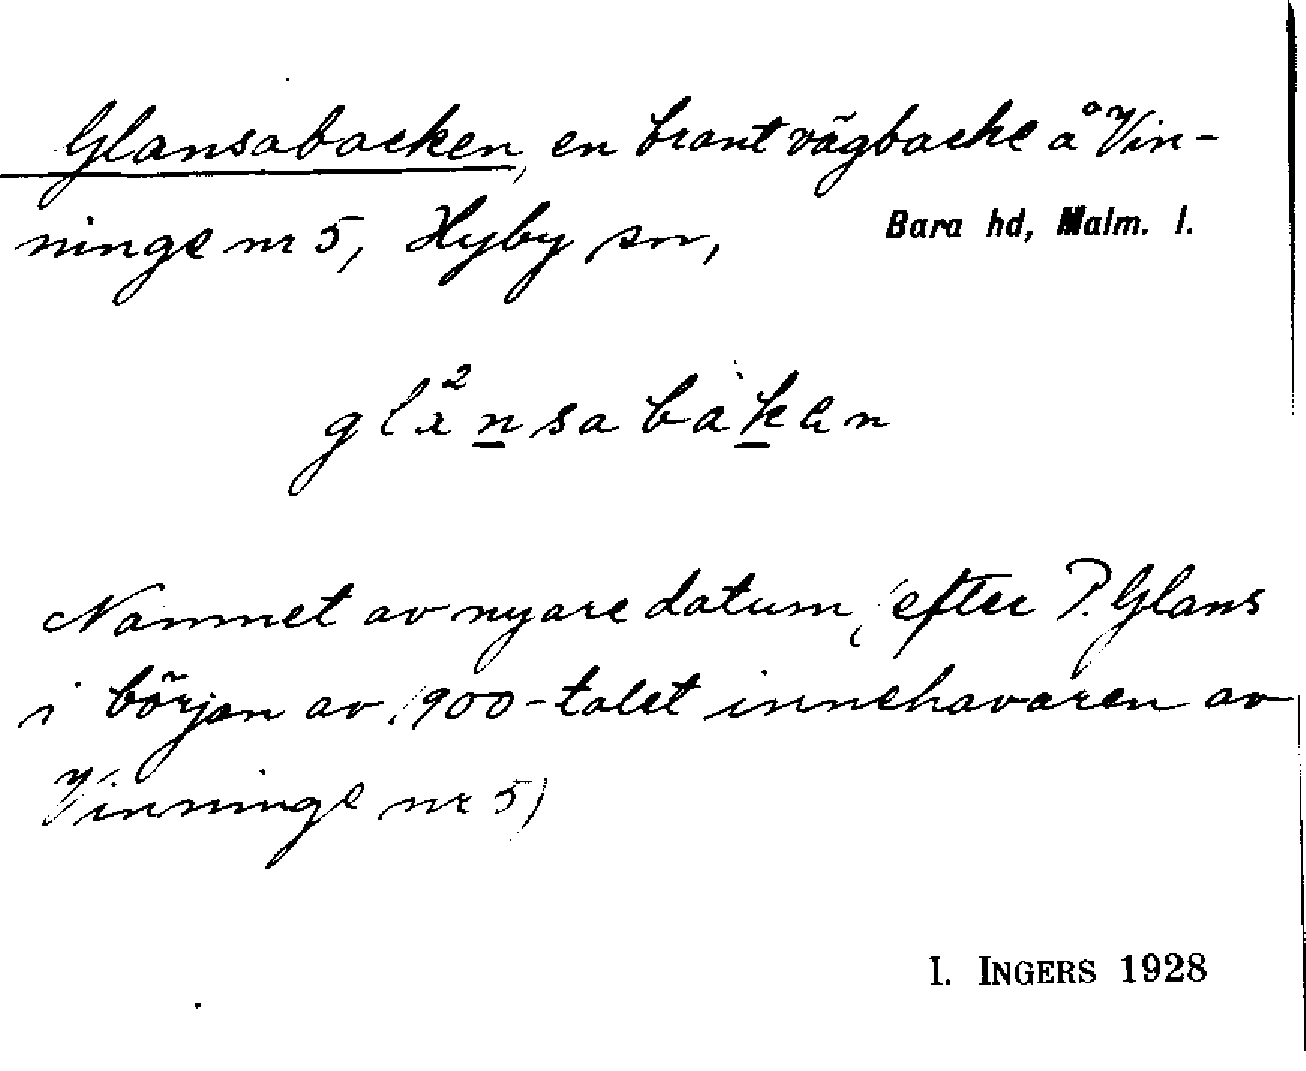 Glansabacken, en brant vägbacke å Vin-
ninge nr 5, Hyby sn, Bara hd, Malm. l.
Namnet av nyare datum, (efter P. Glans
i början av 1900-talet innehavaren av
Vinninge nr 5)
I. INGERS 1928